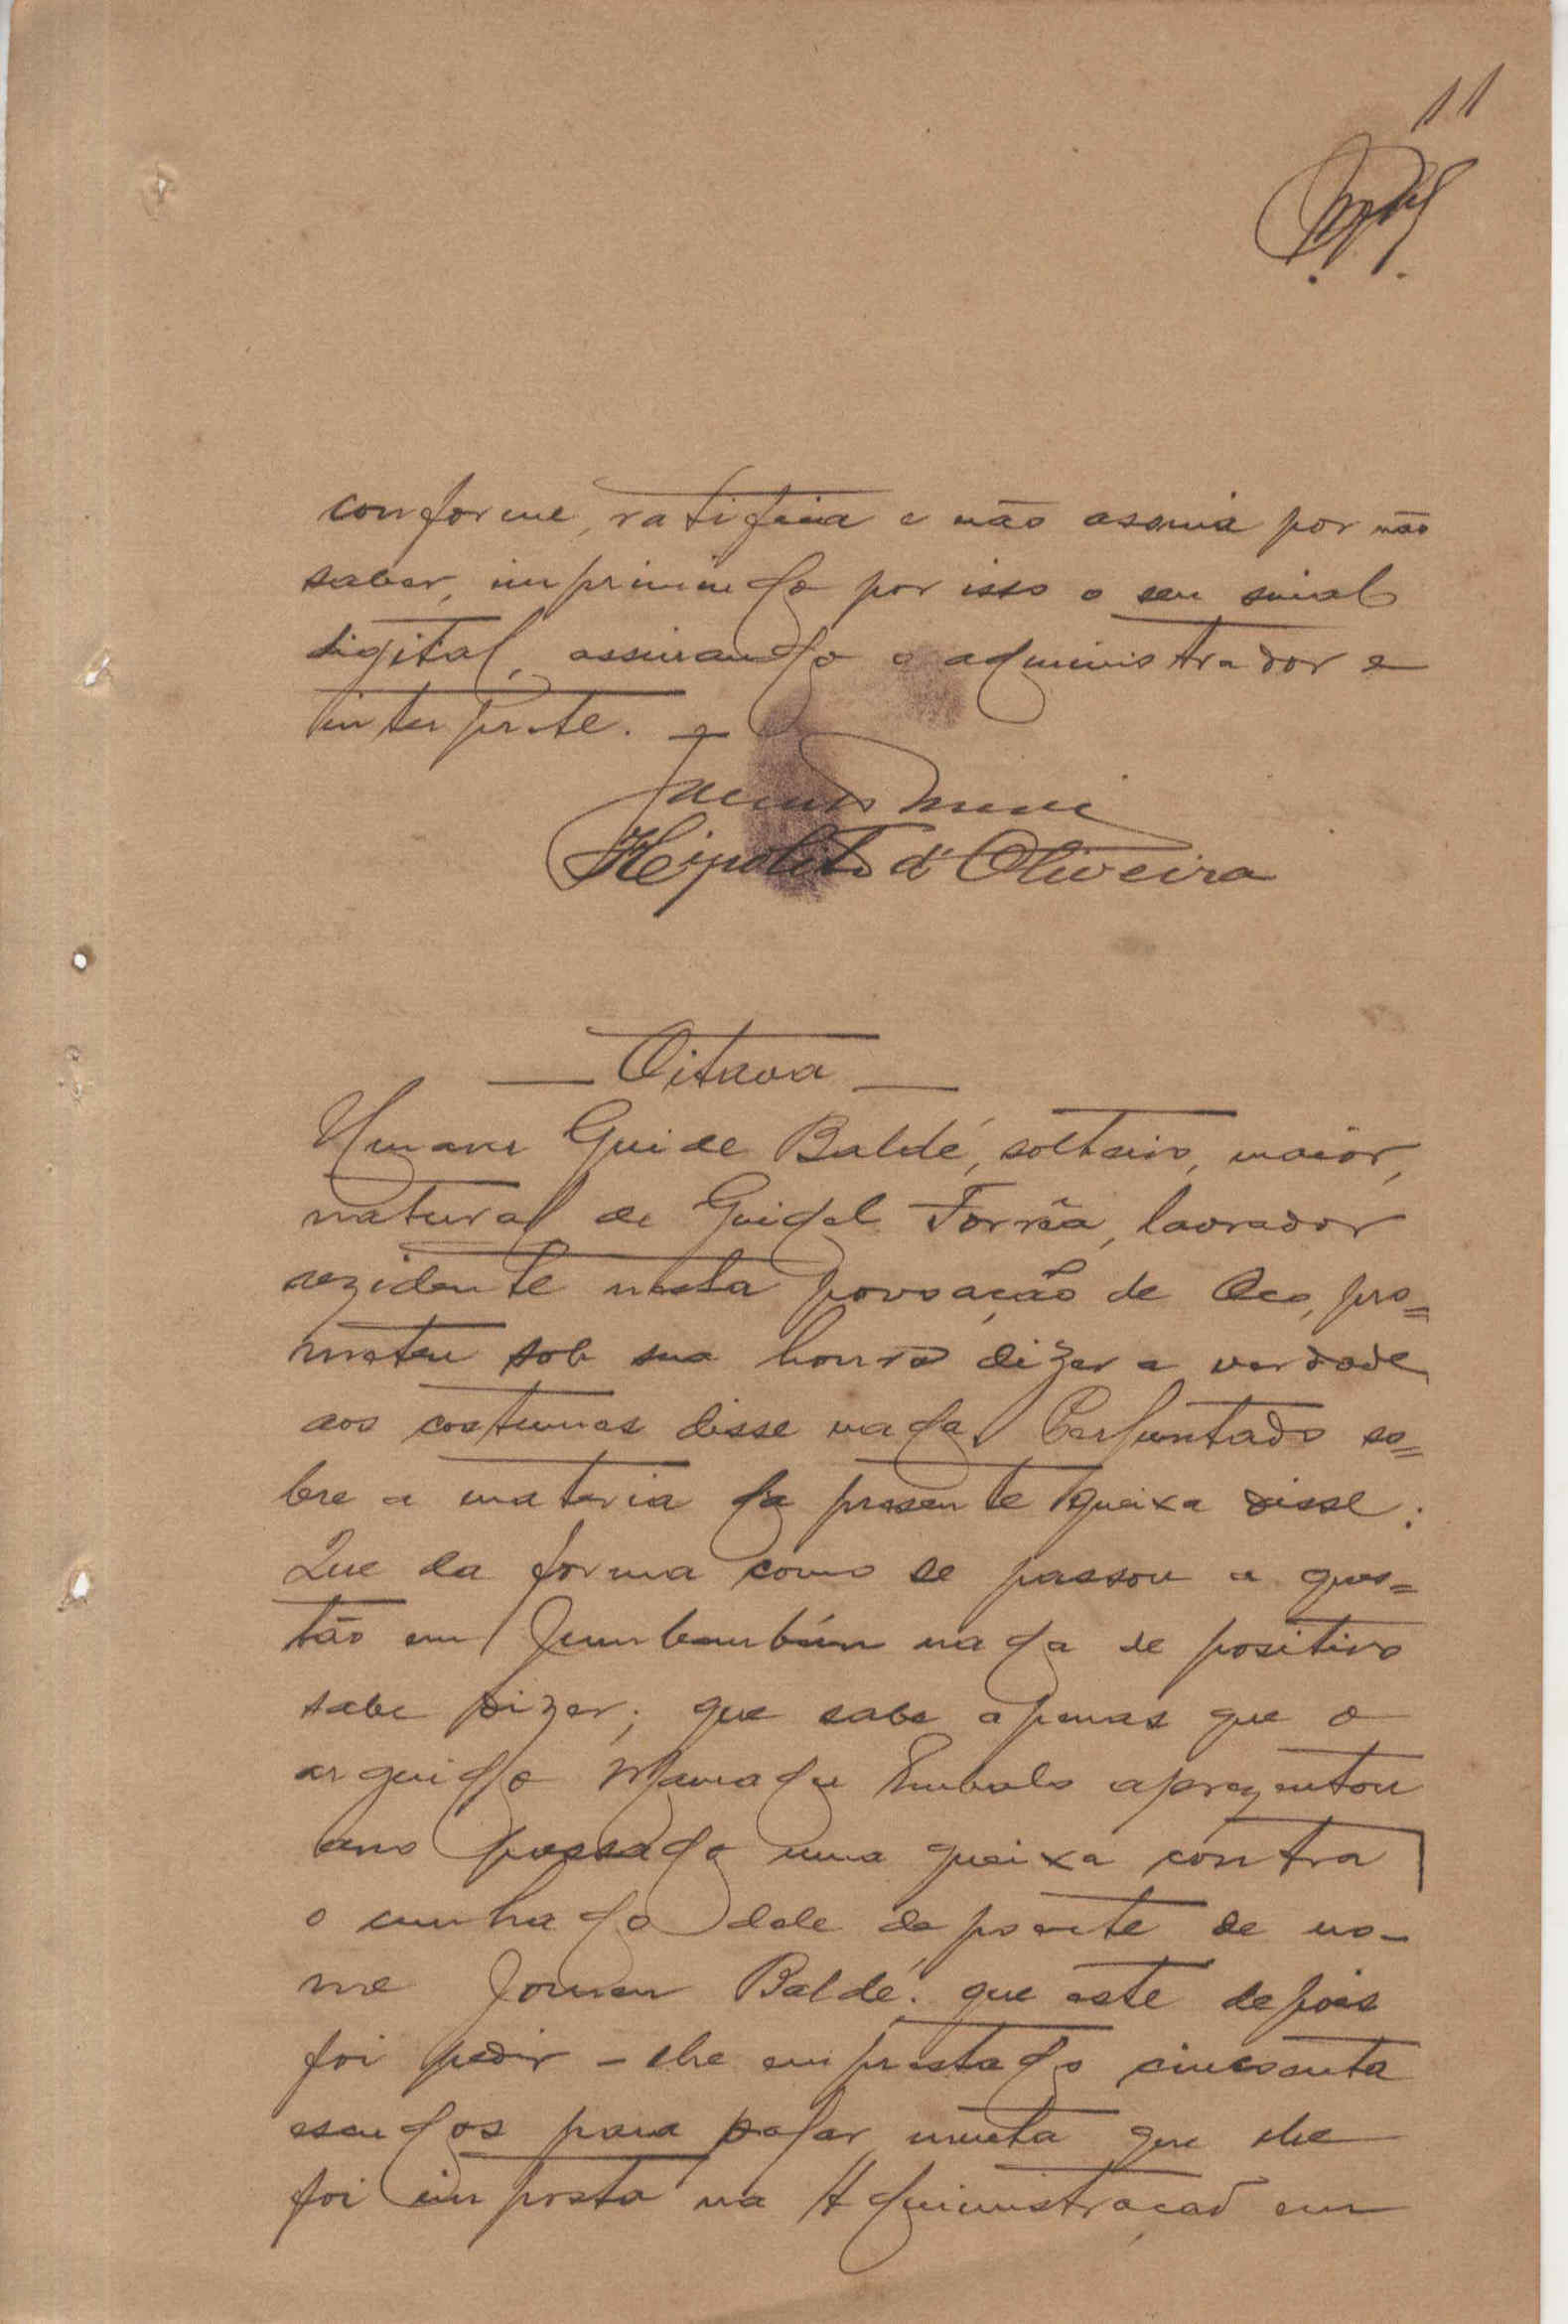 11
conforme, ratifica e não assina por não
saber, imprimindo por isso o seu sinal
digital, assinando o administrador e
interprete. —
Hipolito d'Oliveira
— Oitava —
Guide Baldé, solteiro, maior,
natural de Guidel Forreá, lavrador
rezidente nesta povoação de Oco, pro=
meteu sob sua honra dizer a verdade
aos costumes disse nada. Perguntado so=
bre a materia da presente queixa disse:
Que da forma como se passou a ques=
tão em Jumbembém nada de positivo
sabe dizer; que sabe apenas que o
arguido Mamadu Embalo aprezentou
ano passado uma queixa contra
o cunhado dele depoente de no-
me Baldé; que este depois
foi pedir-lhe emprestado cincoenta
escudos para pagar multa que lhe
foi imposta na Administração em